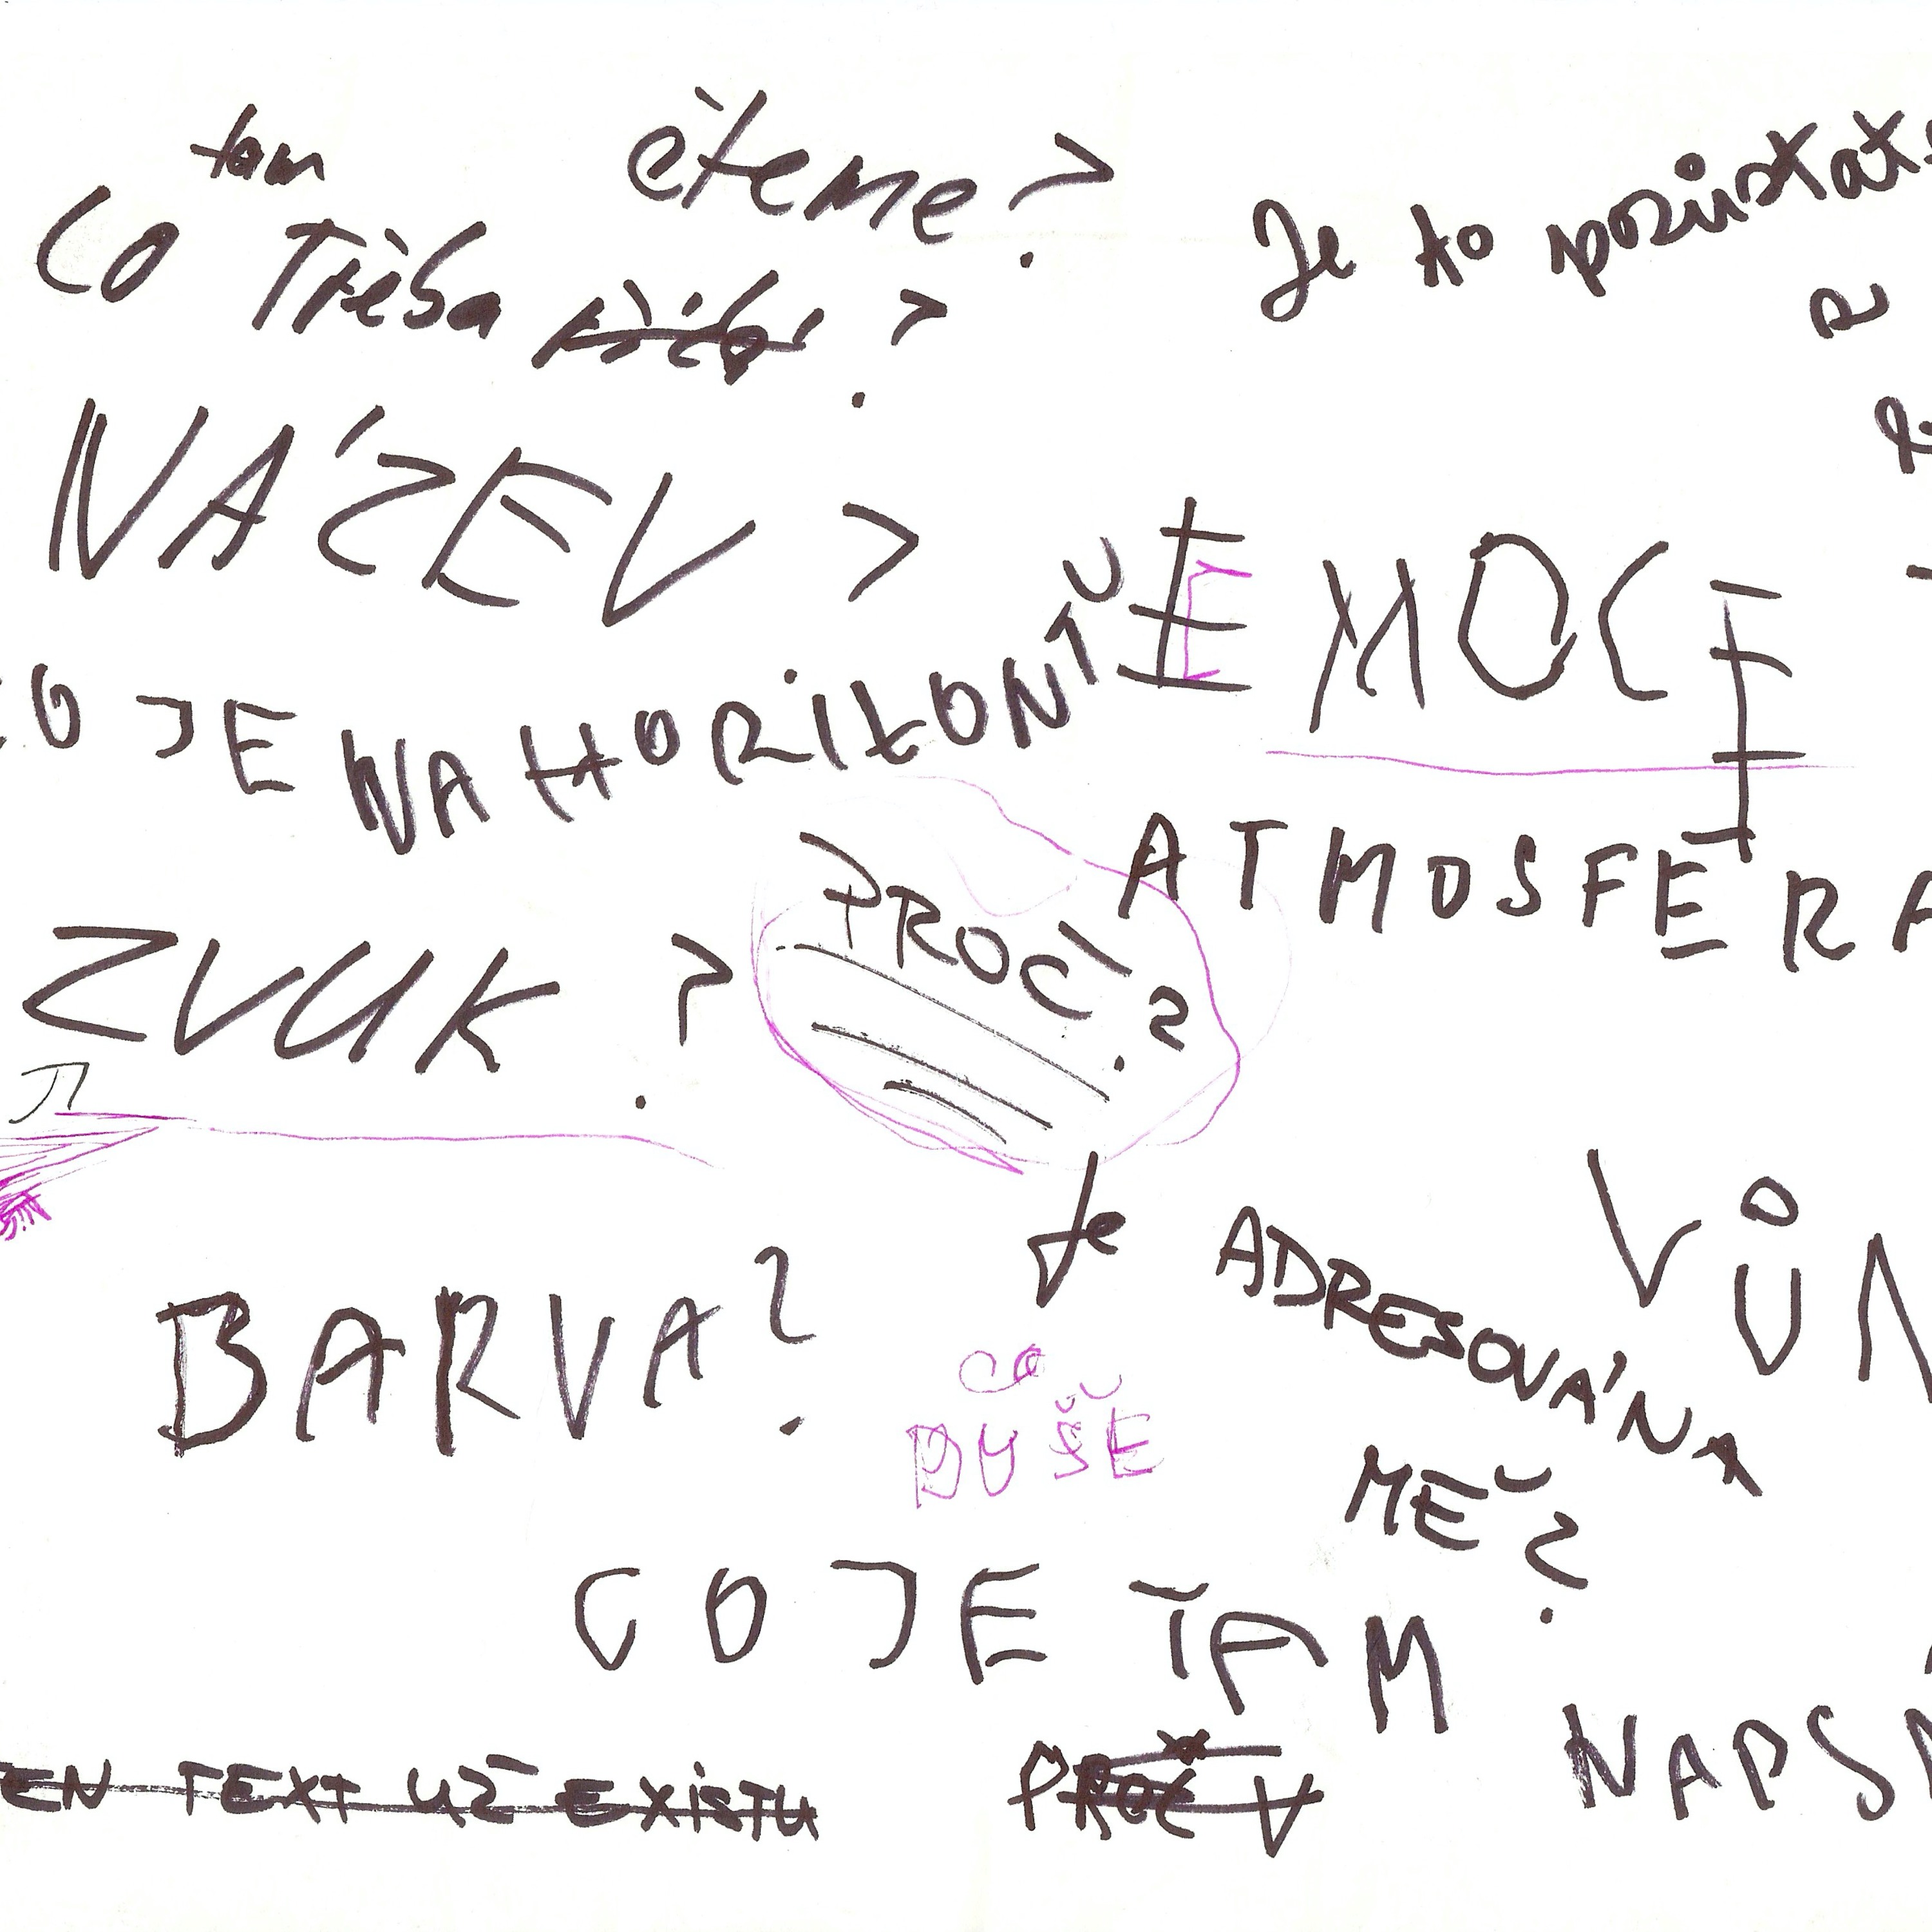 tam čteme?
Co Třeba ?
Je to pozůstat
NÁZEV >
EMOCE
O JE NA HORIZONTU
ATMOSFERA
PROČ?
ZVUK ?
Je ADRESOVÁNA
MĚ?
VŮN
BARVA?
CO
DUŠE
CO JE TAM
NAPSA
EN TEXT UŽ EXISTU
PROČ V